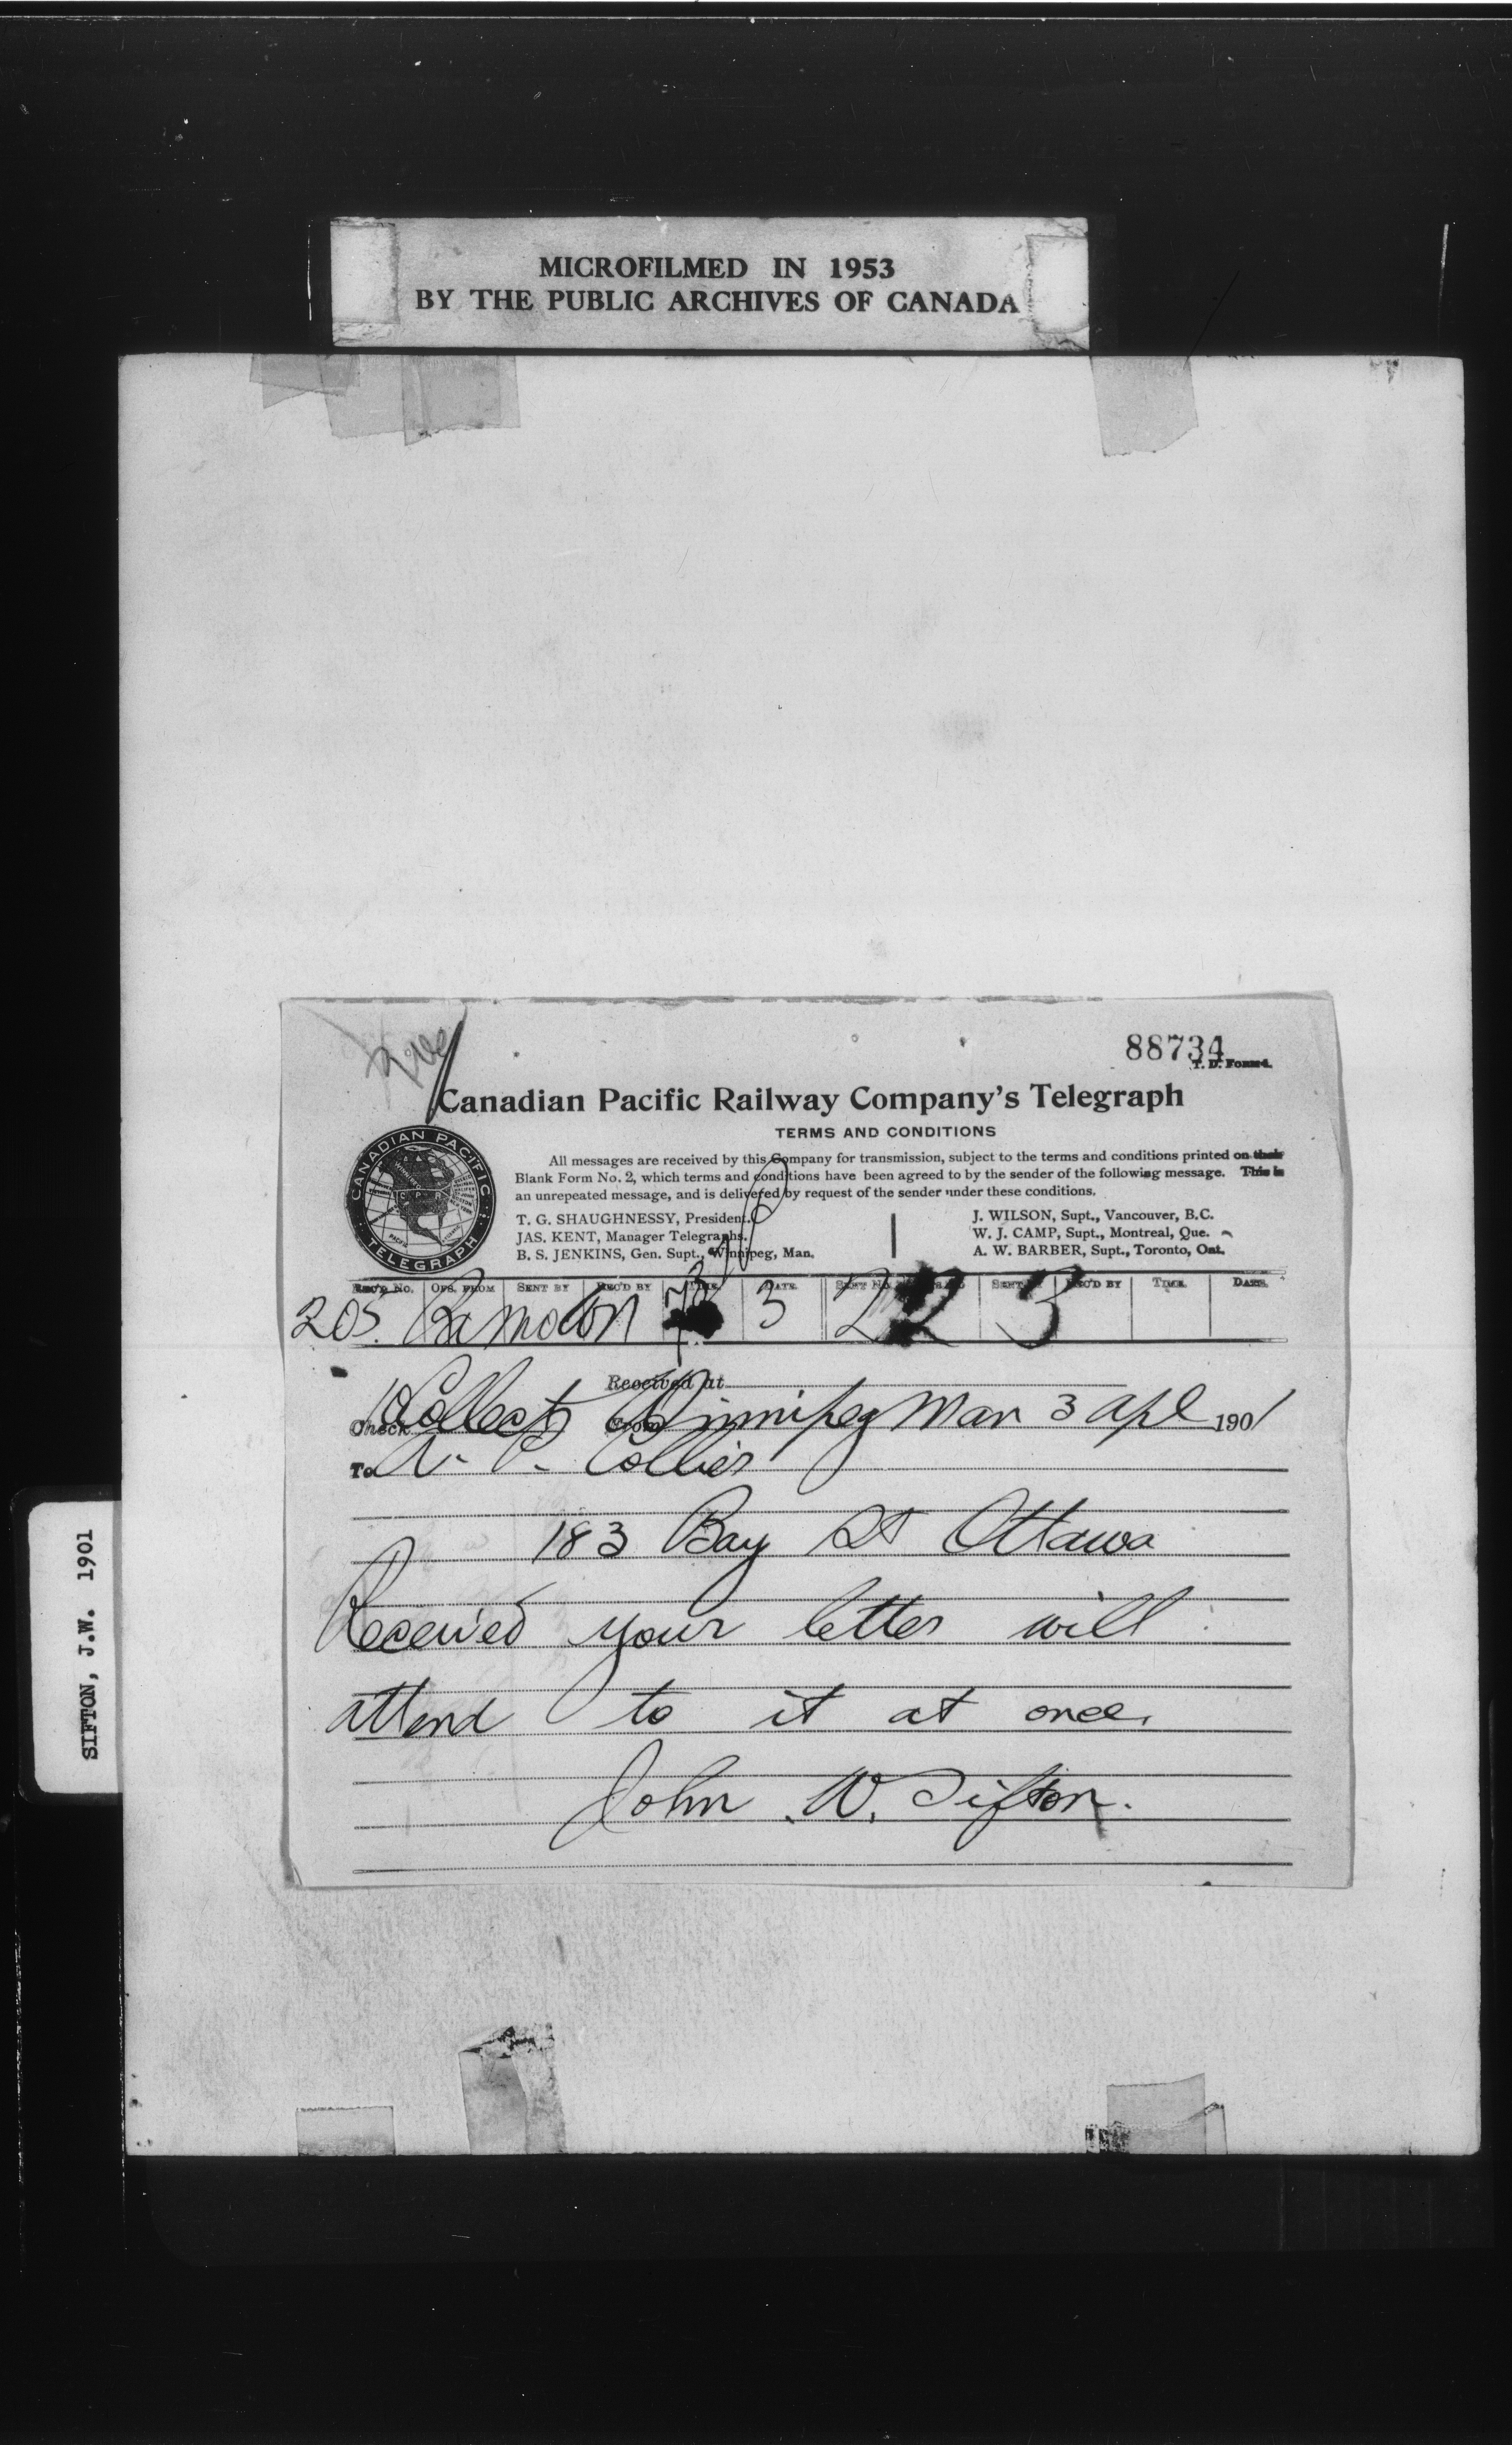 MICROFILMED IN 1953
BY THE PUBLIC ARCHIVES OF CANADA
SIFTON, J.W. 1901
88734
T. D. Form 4.
Canadian Pacific Railway Company's Telegraph
TERMS AND CONDITIONS
CANADIAN PACIFIC
TELEGRAPH
All messages are received by this Company for transmission, subject to the terms and conditions printed on their
Blank Form No. 2, which terms and conditions have been agreed to by the sender of the following message. This is
an unrepeated message, and is delivered by request of the sender under these conditions.
T. G. SHAUGHNESSY, President.
JAS. KENT, Manager Telegraphs.
B. S. JENKINS, Gen. Supt., Winnipeg, Man.
J. WILSON, Supt., Vancouver, B.C.
W. J. CAMP, Supt., Montreal, Que.
A. W. BARBER, Supt., Toronto, Ont.
REC'D No. OFS. FROM SENT BY REC'D BY TIME. DATE. SENT No. SENT REC'D BY TIME. DATE.
205. 3 22 3
Received at
Check 10 Collect From Winnipeg Man 3 Apl 1901
To A. P. Collier
183 Bay St Ottawa
Received your letter will
attend to it at once.
John W. Sifton.